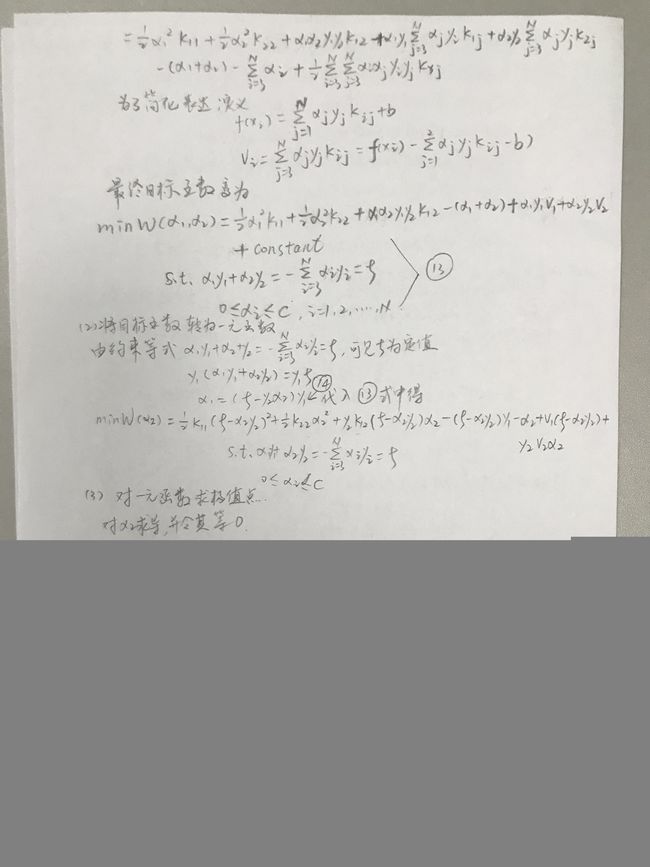 = ½α₁²K₁₁ + ½α₂²K₂₂ + α₁α₂y₁y₂K₁₂ + α₁y₁ Σ_{j=3}^{N} αⱼyᵢK₁ⱼ + α₂y₂ Σ_{j=3}^{N} αⱼyⱼK₂ⱼ
-(α₁+α₂) - Σ_{i=3}^{N} αᵢ + ½ Σ_{i=3}^{N} Σ_{j=3}^{N} αᵢαⱼyᵢyⱼKᵢⱼ
为了简化表达,定义
f(xᵢ) = Σ_{j=1}^{N} αⱼyⱼKᵢⱼ + b
Vᵢ = Σ_{j=3}^{N} αⱼyⱼKᵢⱼ = f(xᵢ) - Σ_{j=1}^{2} αⱼyⱼKᵢⱼ - b)
最终目标函数变为
min W(α₁,α₂) = ½α₁²K₁₁ + ½α₂²K₂₂ + α₁α₂y₁y₂K₁₂ - (α₁+α₂) + α₁y₁V₁ + α₂y₂V₂
+ constant
s.t. α₁y₁ + α₂y₂ = - Σ_{i=3}^{N} αᵢyᵢ = ζ ⑬
0 ≤ αᵢ ≤ C, i=1,2,...,N
(2) 将目标函数转为一元函数
由约束等式 α₁y₁+α₂y₂ = - Σ_{i=3}^{N} αᵢyᵢ = ζ, 可见ζ为定值
y₁(α₁y₁+α₂y₂) = y₁ζ
α₁ = (ζ-y₂α₂)y₁ ⑭ 代入 ⑬ 式中得
min W(α₂) = ½K₁₁(ζ-α₂y₂)² + ½K₂₂α₂² + y₂K₁₂(ζ-α₂y₂)α₂ - (ζ-α₂y₂)y₁ - α₂ + V₁(ζ-α₂y₂) +
y₂V₂α₂
s.t. α₁y₁ α₂y₂ = - Σ_{i=3}^{N} αᵢyᵢ = ζ
0 ≤ αᵢ ≤ C
(3) 对一元函数求极值点...
对α₂求导,并令其等0.